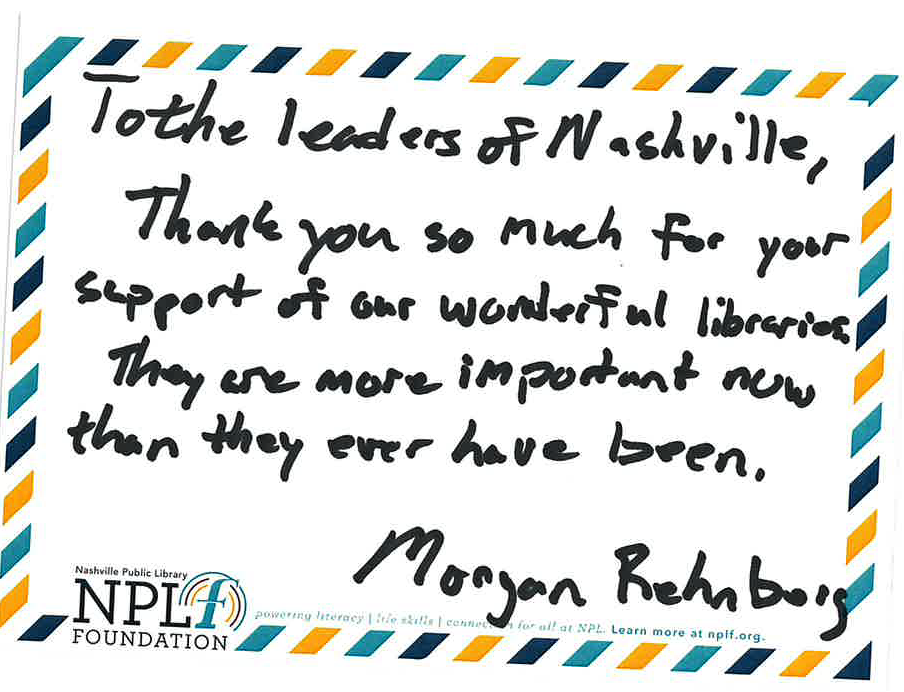 To the leaders of Nashville,
Thank you so much for your
support of our wonderful libraries.
They are more important now
than they ever have been.
Morgan Rehnborg
Nashville Public Library
NPLf
FOUNDATION
powering literacy | life skills | connection for all at NPL. Learn more at nplf.org.